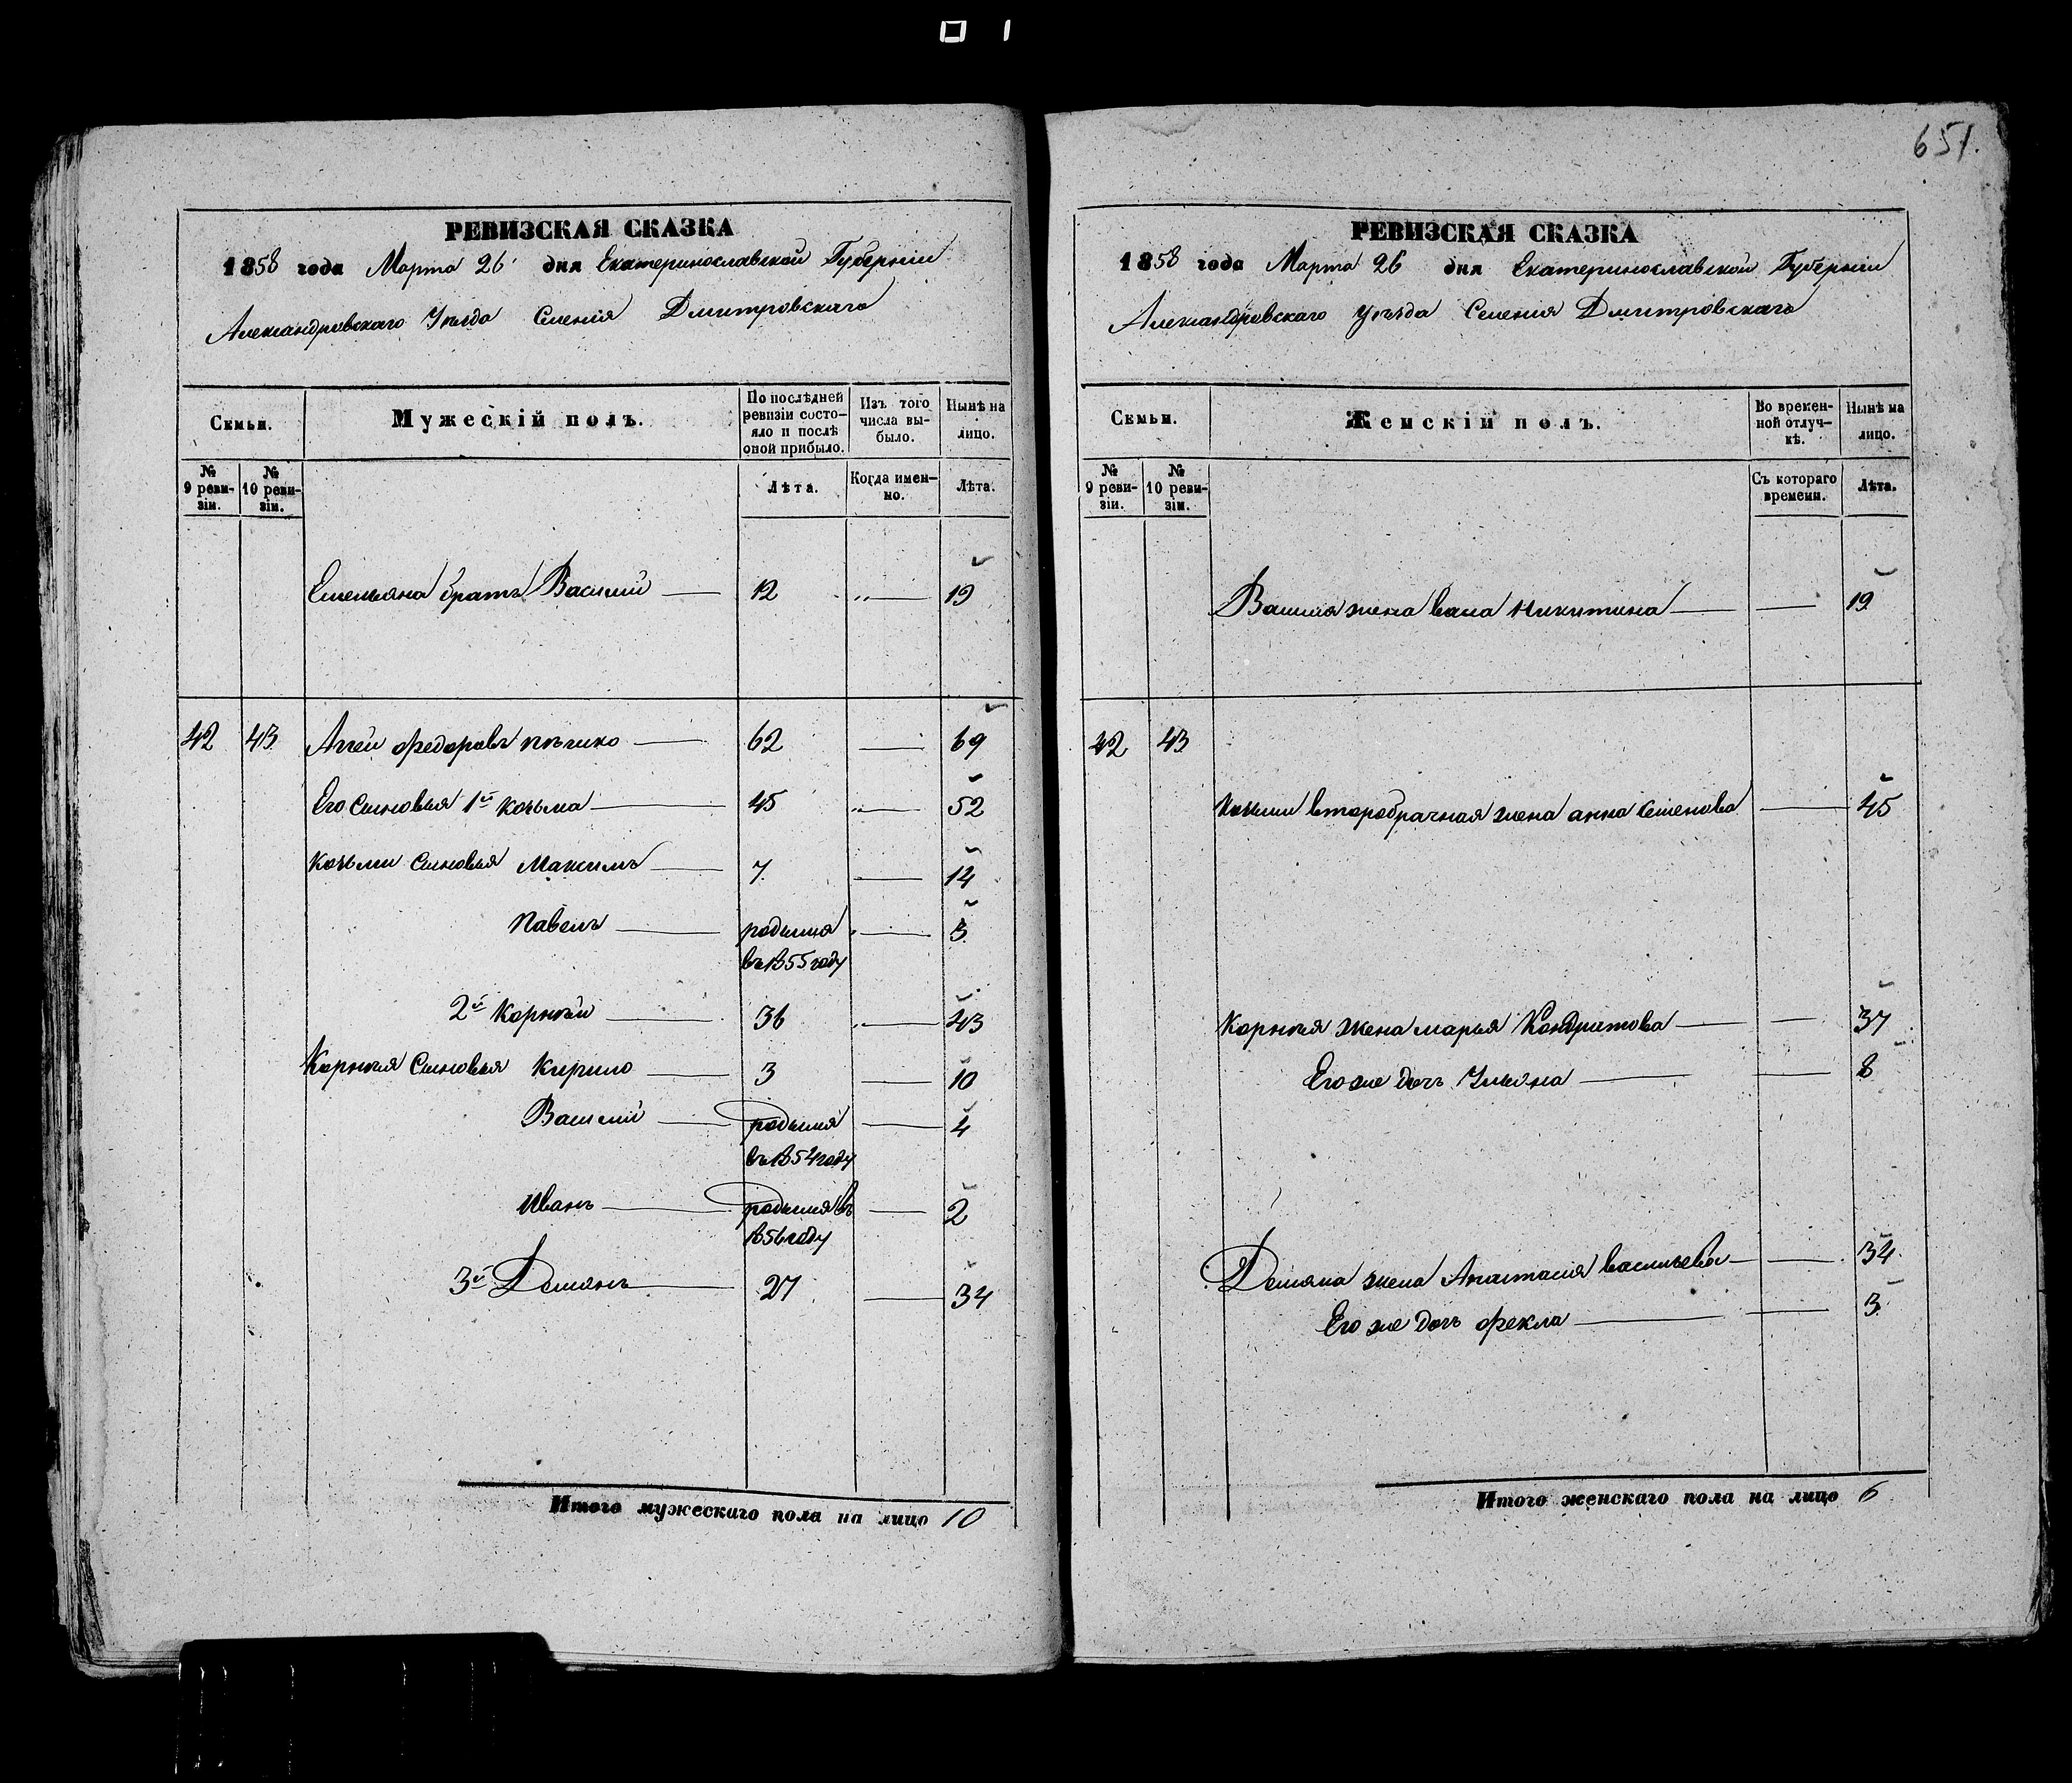 651.
РЕВИЗСКАЯ СКАЗКА
1858 года Марта 26 дня Екатеринославской Губерніи
Александровскаго Уѣзда Селенія Дмитровскаго
Семьи.
Мужескій полъ.
По послѣдней ревизіи состояло и послѣ оной прибыло.
Изъ того числа выбыло.
Нынѣ на лицо.
№ 9 ревизіи.
№ 10 ревизіи.
Лѣта.
Когда именно.
Лѣта.
Емельяна братъ Василий — 12 „ — 19
42 43 Аггей Федоровъ — 62 — 69
Его Сыновья 1й Козьма — 45 „ — 52
Козьми Сыновья Максимъ — 7 — 14
Павелъ — родился — 3
въ 1855 году
2й Корнѣй — 36 „ — 43
Корнѣя Сыновья Кирило — 3 — 10
Василий — родился — 4
въ 1854 году
Иванъ — родился въ — 2
1856 году
3й Демянъ — 27 — 34
Итого мужескаго пола на лицо 10
РЕВИЗСКАЯ СКАЗКА
1858 года Марта 26 дня Екатеринославской Губерніи
Александровскаго Уѣзда Селенія Дмитровскаго
Семьи.
Женскій полъ.
Во временной отлучкѣ.
Нынѣ на лицо.
№ 9 ревизіи.
№ 10 ревизіи.
Съ котораго времени.
Лѣта.
Василія жена Васа Никитина — — 19
42 43
Козьми второбрачная жена анна Семенова — 45
Корнѣя жена марья Кондратова — — 37
Его же дочь Ульяна — — 8
Демяна жена Анастасія васильева — — 34
Его же дочь Фекла — — 3
Итого женскаго пола на лицо 6